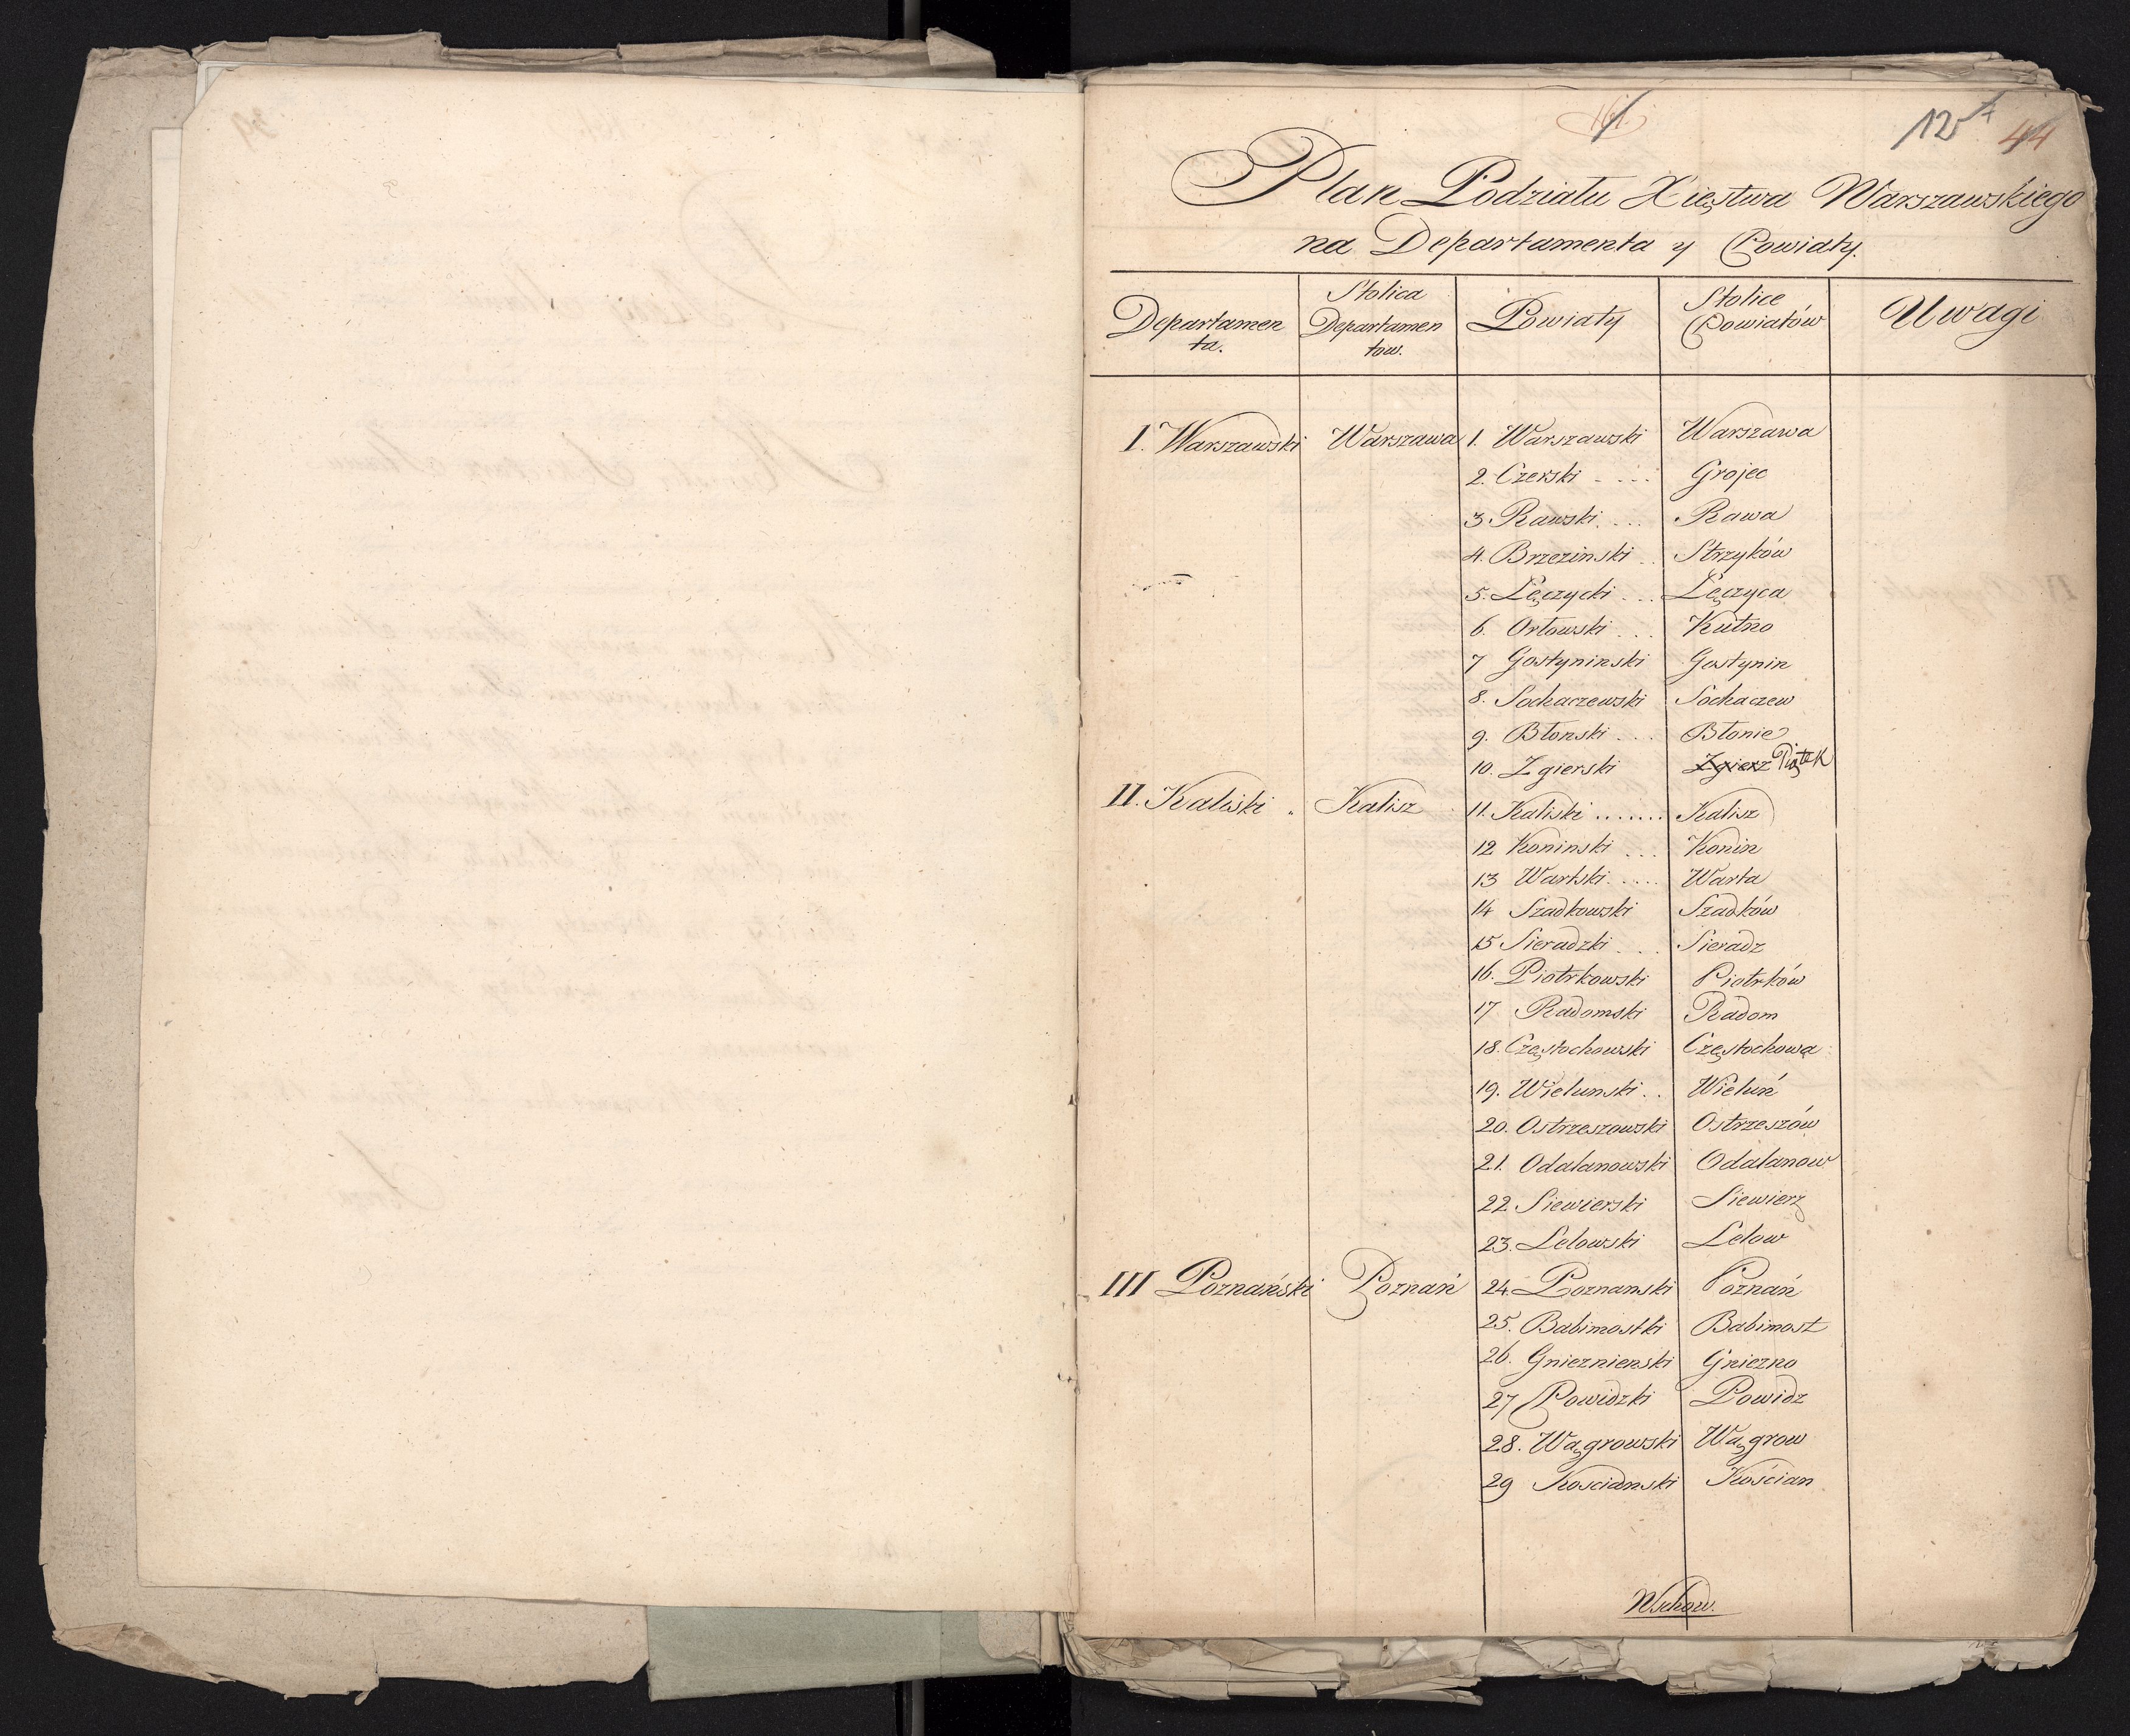 125 44
Plan Podziału Xięstwa Warszawskiego
na Departamenta y Powiaty.
Departamen
ta.
Stolica
Departamen
tow.
Powiaty
Stolice
Powiatów
Uwagi
I. Warszawski Warszawa 1. Warszawski Warszawa
2. Czerski .... Grojec
3. Rawski .... Rawa
4. Brzezinski .. Stryków
5. Łęczycki ... Łęczyca
6. Orłowski ... Kutno
7 Gostyninski Gostynin
8. Sochaczewski Sochaczew
9. Błonski ... Błonie
10. Zgierski Zgierz Piątek
II. Kaliski .. Kalisz 11. Kaliski ....... Kalisz
12 Koninski ... Konin
13 Wartski ..... Warta
14 Szadkowski Szadków
15 Sieradzki ... Sieradz
16. Piotrkowski Piotrków
17 Radomski Radom
18. Częstochowski Częstochowa
19. Wielunski .. Wieluń
20. Ostrzeszowski Ostrzeszów
21. Odalanowski Odalanow
22 Siewierski Siewierz
23. Lelowski Lelow
III Poznański Poznań 24. Poznanski Poznań
25. Babimostki Babimost
26. Gnieznienski Gniezno
27 Powidzki Powidz
28. Wągrowski Wągrow
29 Koscianski Kościan
Wschow.